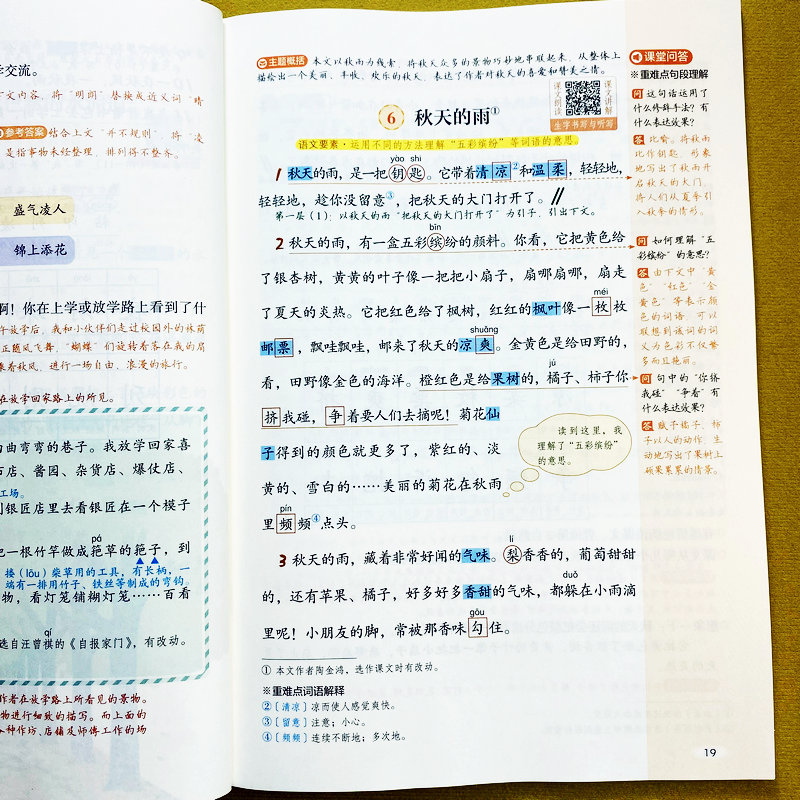 学交流。
下文内容，将“明朗”替换成近义词“晴
参考答案 结合上文“并不规则”，将“凌
是指事物未经整理，排列得不整齐。
盛气凌人
锦上添花
啊！你在上学或放学路上看到了什
午放学后，我和小伙伴们走过校园外的林荫
正随风飞舞，“蝴蝶”们旋转着落在我的肩
乘着秋风，进行一场自由、浪漫的旅行。
在放学回家路上的所见。
曲弯弯的巷子。我放学回家喜
店、酱园、杂货店、爆仗店、
工场。
到银匠店里去看银匠在一个模子
pá
把一根竹竿做成筢草的筢子，到
搂（lōu）柴草用的工具，有长柄，一
端有一排用竹子、铁丝等制成的弯钩。
物，看灯笼铺糊灯笼……百看
qí
选自汪曾祺的《自报家门》，有改动。
作者在放学路上所看见的景物。
物进行细致的描写。而上面的
各种作坊、店铺及师傅工作的场
主题概括 本文以秋雨为线索，将秋天众多的景物巧妙地串联起来，从整体上
描绘出一个美丽、丰收、欢乐的秋天，表达了作者对秋天的喜爱和赞美之情。
6 秋天的雨①
课文朗读
课文讲解
生字书写与听写
语文要素·运用不同的方法理解“五彩缤纷”等词语的意思。
yào shi
1 秋天的雨，是一把钥匙。它带着清凉②和温柔，轻轻地，
轻轻地，趁你没留意③，把秋天的大门打开了。//
第一层（1）：以秋天的雨“把秋天的大门打开了”为引子，引出下文。
bīn
2 秋天的雨，有一盒五彩缤纷的颜料。你看，它把黄色给
了银杏树，黄黄的叶子像一把把小扇子，扇哪扇哪，扇走
了夏天的炎热。它把红色给了枫树，红红的枫叶像一枚枚
méi
shuǎng
邮票，飘哇飘哇，邮来了秋天的凉爽。金黄色是给田野的，
看，田野像金色的海洋。橙红色是给果树的，橘子、柿子你
jú
挤我碰，争着要人们去摘呢！菊花仙
子得到的颜色就更多了，紫红的、淡
黄的、雪白的……美丽的菊花在秋雨
pín
里频频④点头。
读到这里，我
理解了“五彩缤纷”
的意思。
lí
3 秋天的雨，藏着非常好闻的气味。梨香香的，菠萝甜甜
duǒ
的，还有苹果、橘子，好多好多香甜的气味，都躲在小雨滴
gōu
里呢！小朋友的脚，常被那香味勾住。
① 本文作者陶金鸿，选作课文时有改动。
※重难点词语解释
②〔清凉〕凉而使人感觉爽快。
③〔留意〕注意；小心。
④〔频频〕连续不断地；多次地。
课堂问答
※重难点句段理解
问 这句话运用了
什么修辞手法？有
什么表达效果？
答 比喻。将秋雨
比作钥匙，形象
地写出了秋雨开
启秋天的大门，
将人们从夏季引
入秋季的情形。
问 如何理解“五
彩缤纷”的意思？
答 由下文中“黄
色”“红色”“金
黄色”等表示颜
色的词语，可以
联想到该词的词
义为色彩不仅繁
多而且艳丽。
问 句中的“你挤
我碰”“争着”有
什么表达效果？
答 赋予橘子、柿
子以人的动作，生
动地写出了果树上
硕果累累的情景。
19